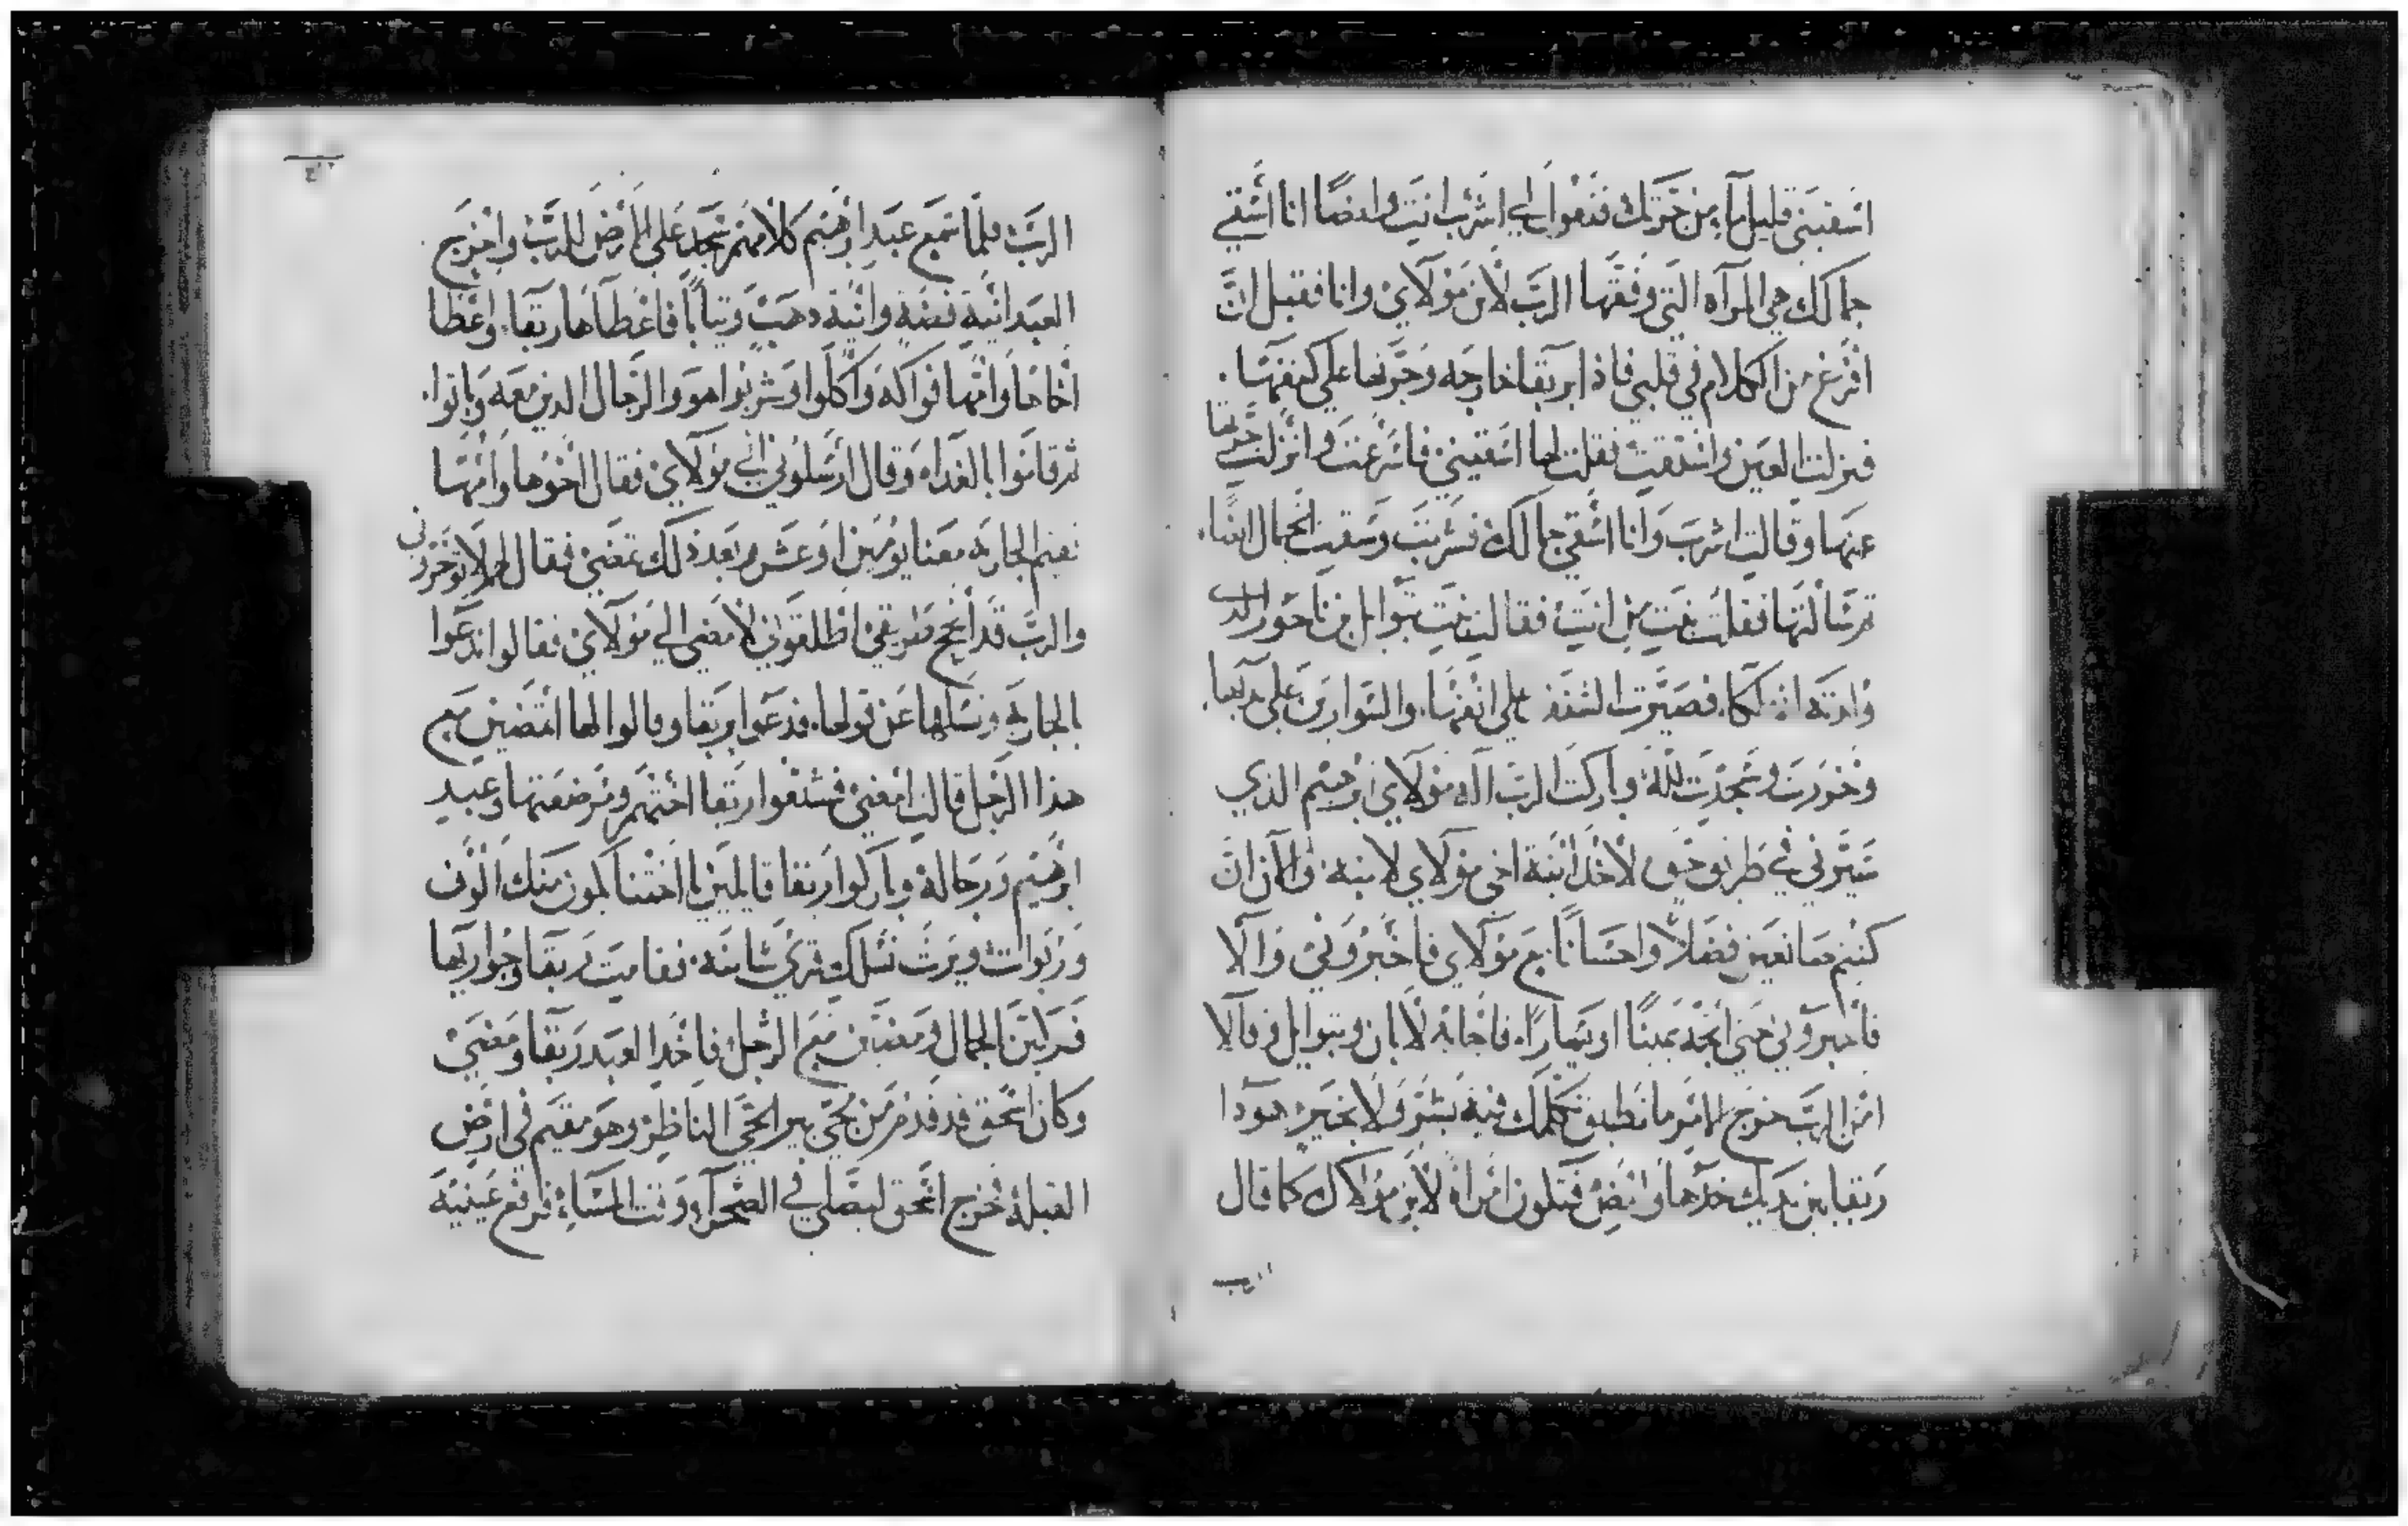 اسقينى قليل ماء من جرتك فتقول لي اشرب انت وايضا انا اسقي
جمالك هي المرآه التي وفقها الرب لابن مولاي وانا فقبل ان
افرغ من الكلام في قلبي فاذا بربقا خارجه وجرتها علي كتفها.
فنزلت العين واستقت فقلت لها اسقيني فاسرعت وانزلت جرتها
عنها وقالت اشرب وانا اسقي جمالك فشربت وسقيت الجمال ايضا.
ثم سالتها فقلت بنت من انت فقالت بنت بتوايل بن ناحور الذي
ولدته له ملكا. فصيرت الشنف علي انفها. والسوارين علي يديها.
وخررت وسجدت لله وباركت الرب اله مولاي ابرهيم الذي
سيرني في طريق حق لاخذ ابنة اخي مولاي لابنه. والآن ان
كنتم صانعين فضلا واحسانا مع مولاي فاخبروني والا
فاخبروني حتي اتجه يمينا او يسارا. فاجابه لابان وبتوايل وقالا
من الرب خرج الامر ما نطيق نكلمك فيه بشر ولا بخير هودا
ربقا بين يديك خذها وامض فتكون امراة لابن مولاك كما قال
الرب
الرب فلما سمع عبد ابرهيم كلامهم سجد علي الارض للرب واخرج
العبد انية فضة وانية دهب وثيابا فاعطاها ربقا. واعطا
اخاها وامها فواكه واكلوا وشربوا هو والرجال الذين معه وباتوا.
ثم قاموا بالغداه وقال ارسلوني الي مولاي فقال اخوها وامها
تقيم الجاريه معنا يومين او عشره بعد ذلك تمضي فقال لهم لا توخروني
والرب قد انجح طريقي اطلقوني لامضي الي مولاي فقالوا ندعوا
بالجاريه ونسلها عن قولها. فدعوا بربقا وقالوا لها اتمضين مع
هذا الرجل قالت امضي فشيعوا ربقا اختهم ومرضعتها وعبد
ابرهيم ورجاله وباركوا ربقا قايلين يا اختنا تكون منك الوف
وربوات ويرث نسلك قري شانيه. فقامت ربقا وجواريها
فركبن الجمال ومضين مع الرجل فاخذ العبد ربقا ومضي
وكان اسحق قد قدم من مجي بير الحي الناظر وهو مقيم في ارض
القبله فخرج اسحق ليصلي في الصحراء وقت المساء. فرفع عينيه